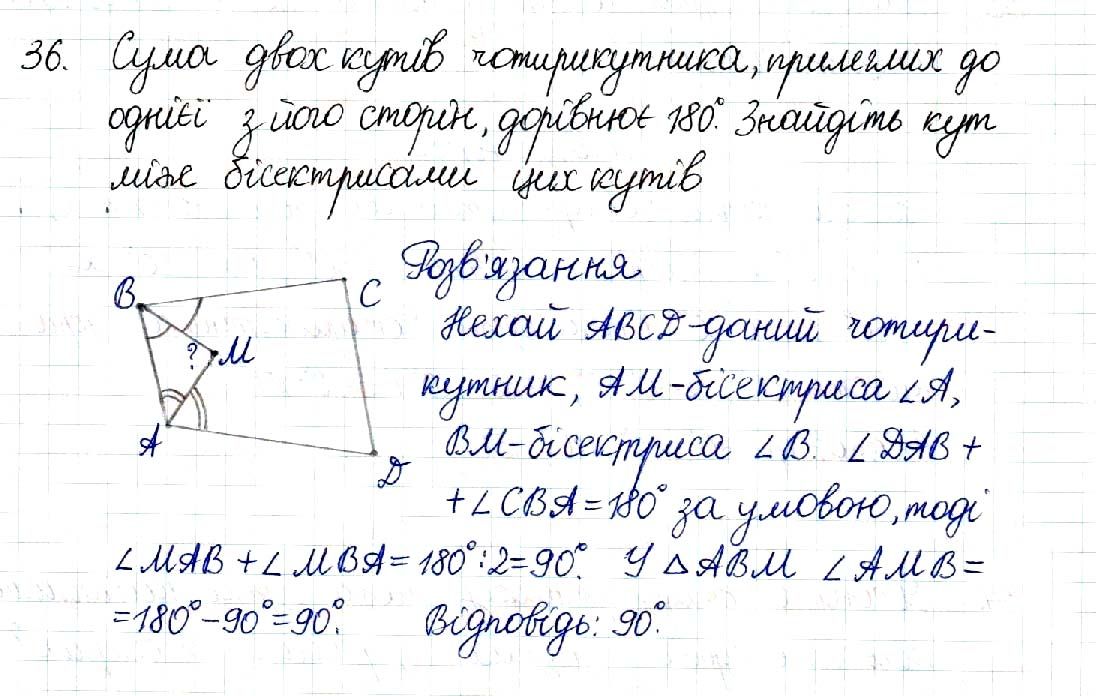 36. Сума двох кутів чотирикутника, прилеглих до
однієї з його сторін, дорівнює 180°. Знайдіть кут
між бісектрисами цих кутів
Розв'язання
B
C
Нехай ABCD-даний чотири-
? M
кутник, AM-бісектриса ∠A,
A
BM-бісектриса ∠B. ∠DAB +
D
+∠CBA=180° за умовою, тоді
∠MAB +∠MBA= 180°:2=90°. У △ABM ∠AMB=
=180°-90°=90°. Відповідь: 90°.